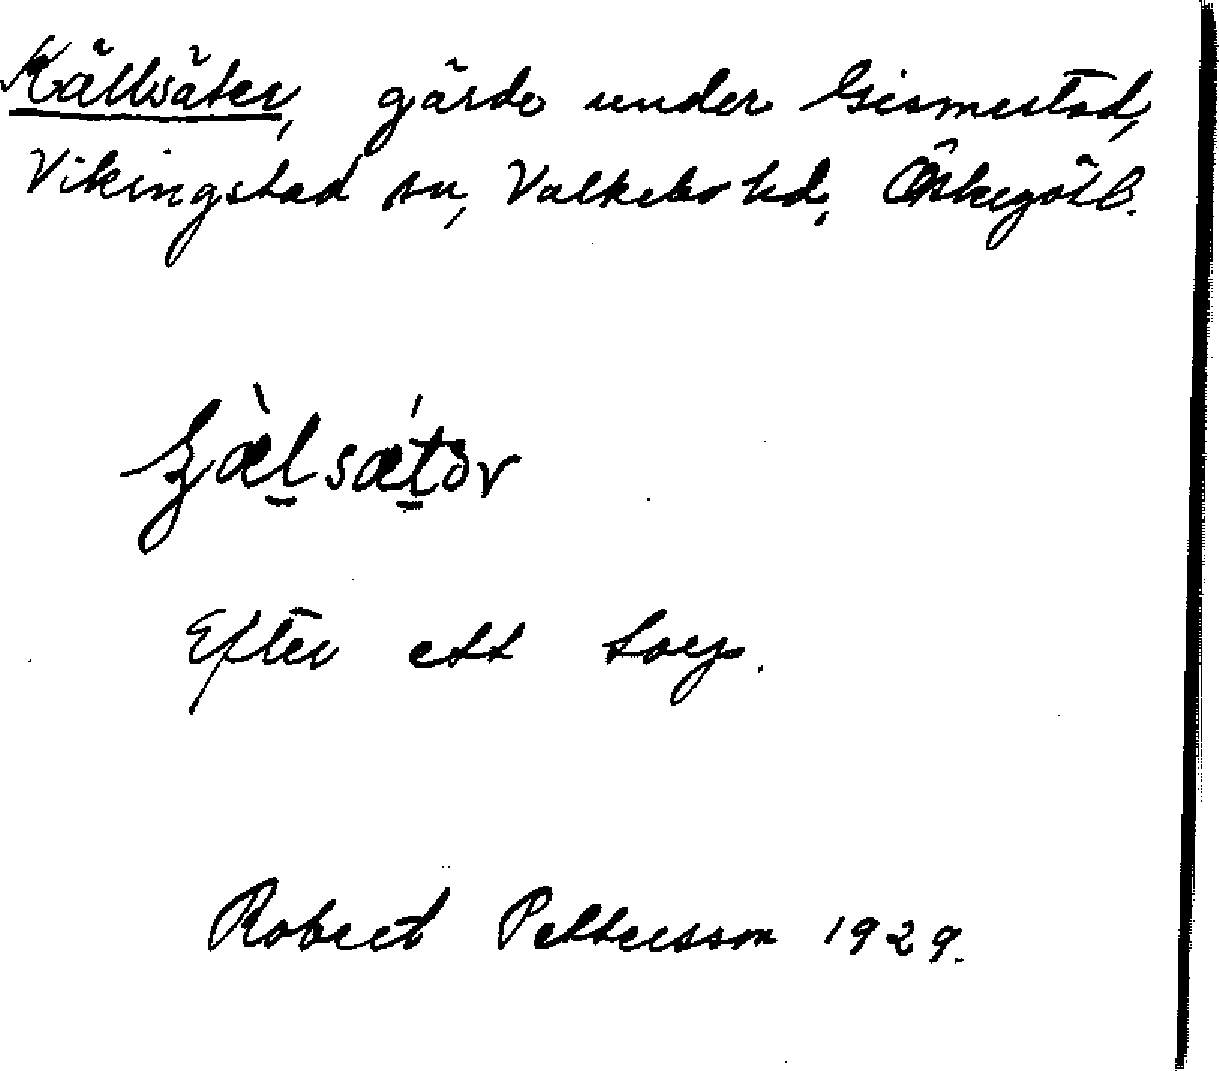 Källsäter, gärde under Gismestad,
Vikingstad sn, Valkebo hd, Östergötl.
Efter ett torp.
Robert Pettersson 1929.